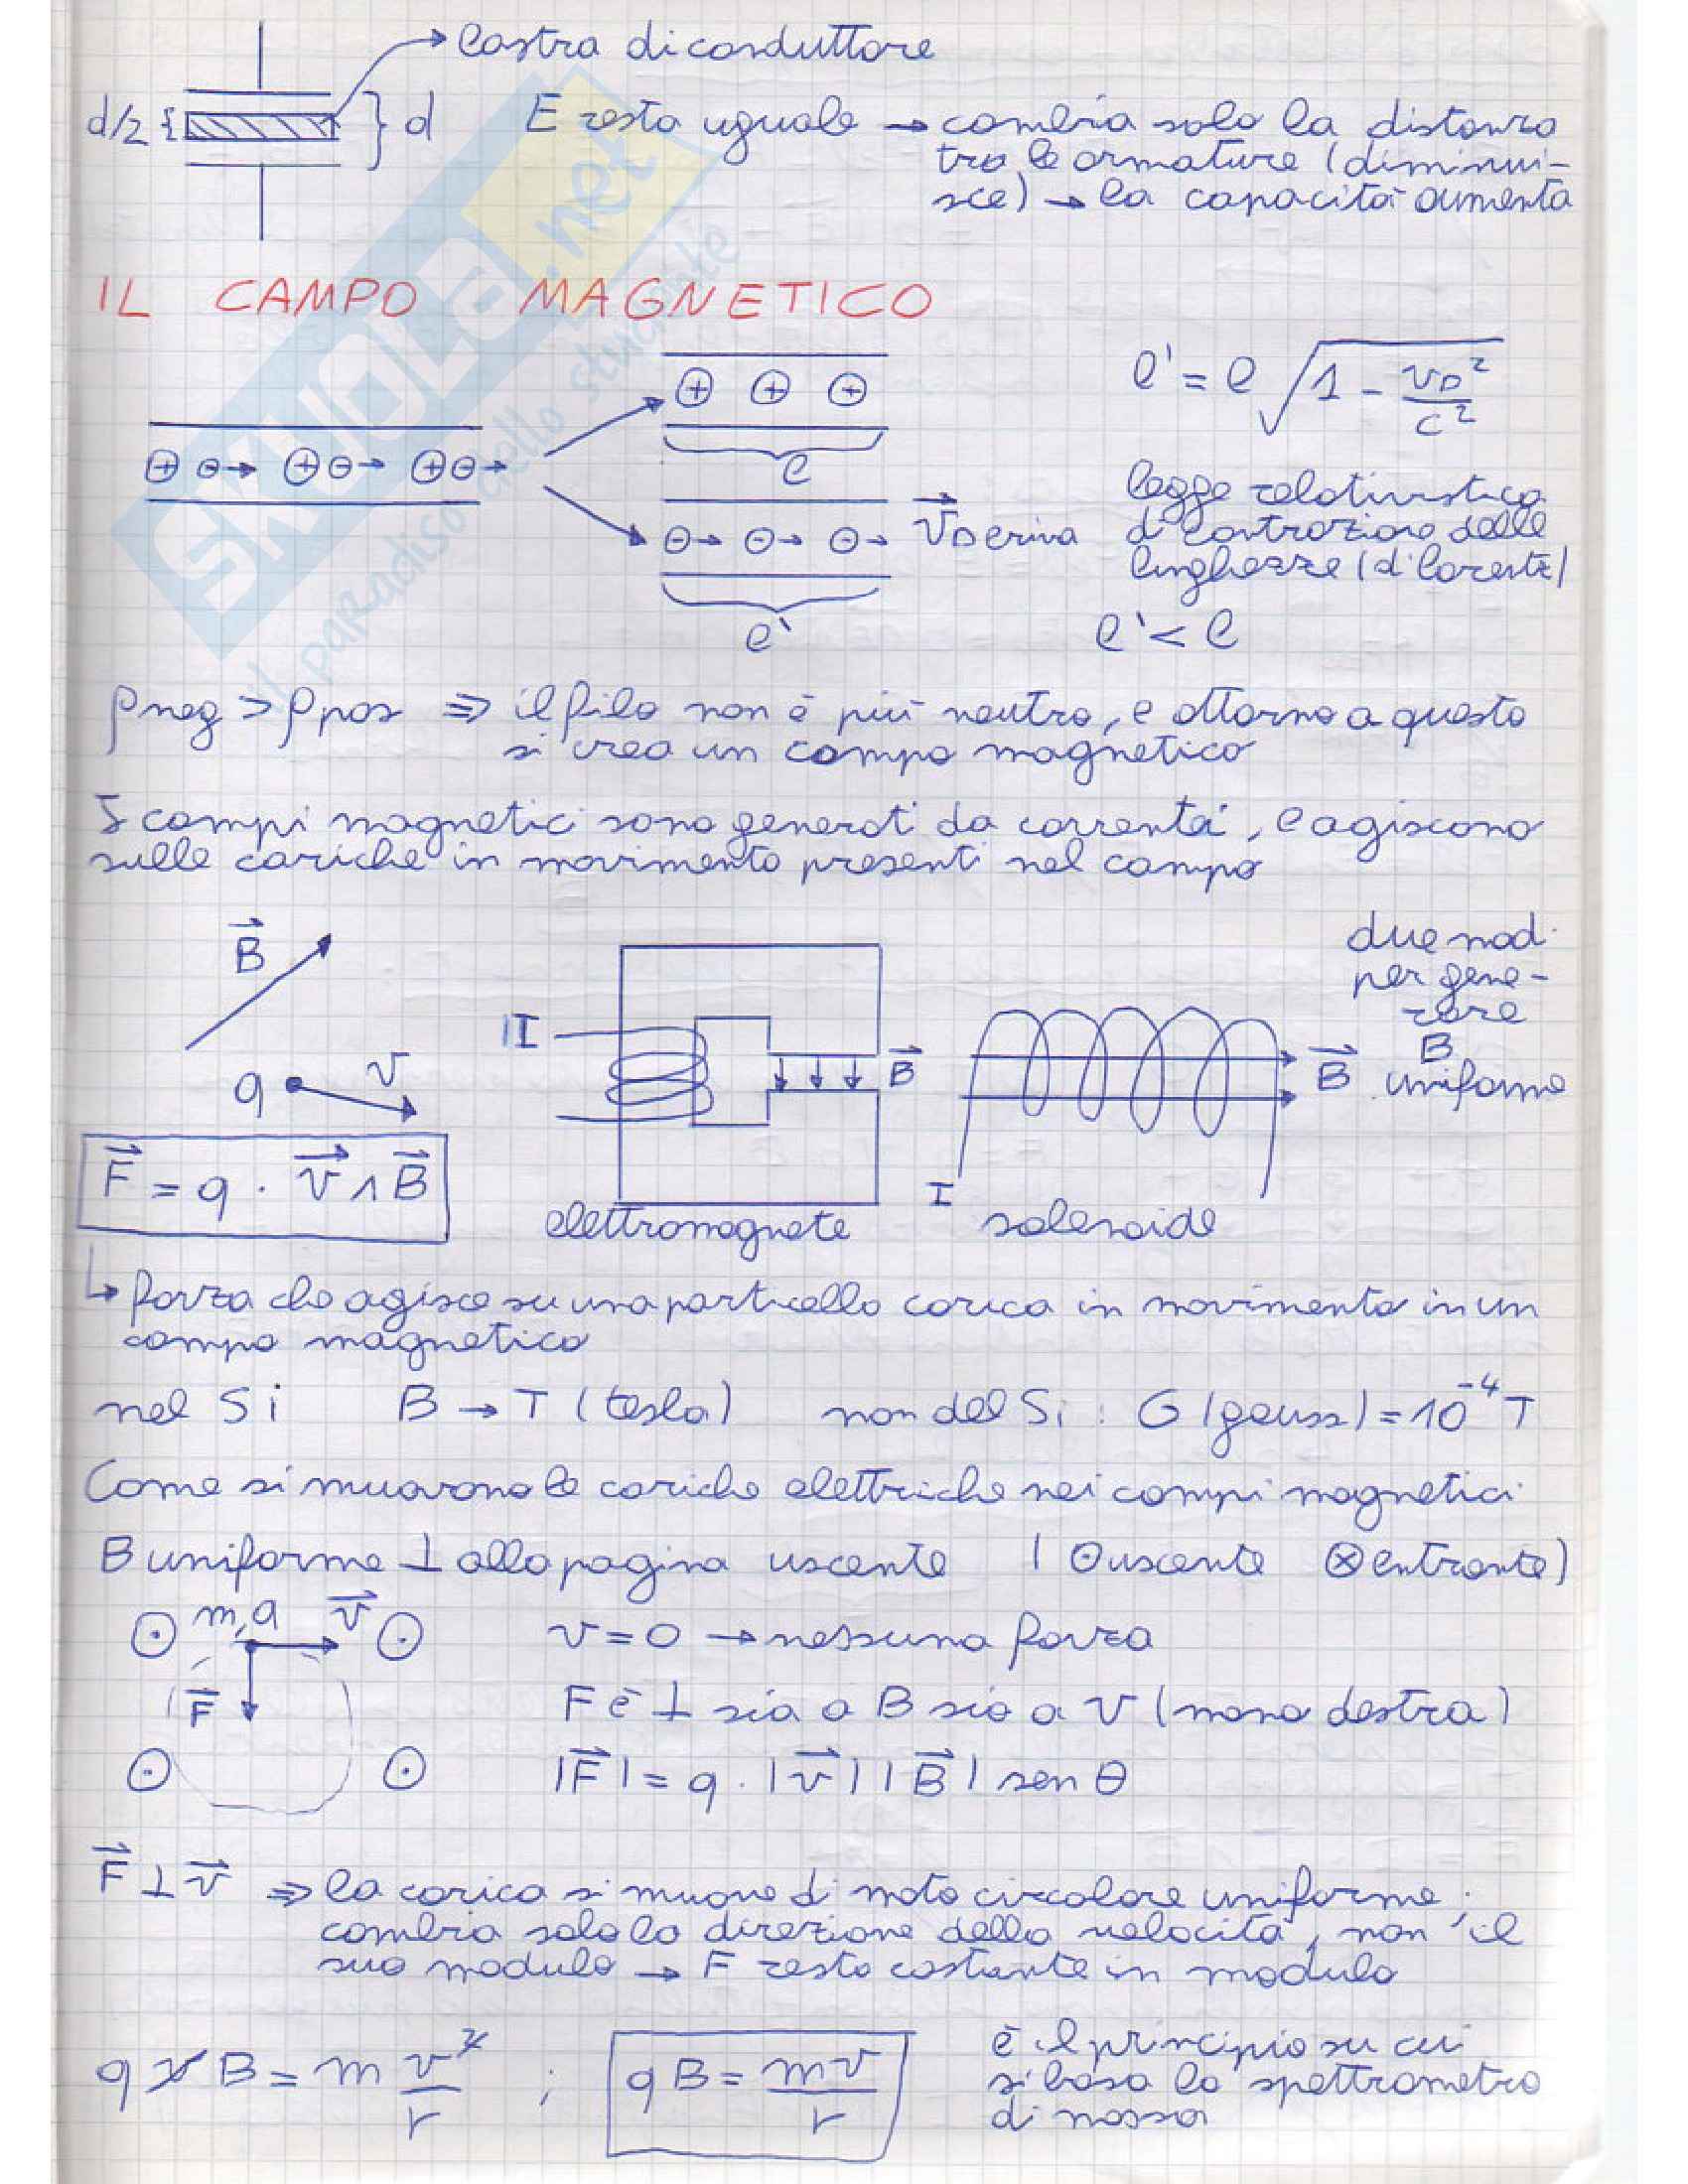 lastra di conduttore
d/2 { } d E resta uguale → cambia solo la distanza
tra le armature (diminui-
sce) → la capacità aumenta
IL CAMPO MAGNETICO
⊕ ⊕ ⊕
l' = l √(1 - vD²/c²)
⊕ ⊖→ ⊕⊖→ ⊕⊖→
l
⊖→ ⊖→ ⊖→ vDeriva
legge relativistica
di contrazione delle
lunghezze (di Lorentz)
l'
l' < l
ρneg > ρpos ⇒ il filo non è più neutro, e attorno a questo
si crea un campo magnetico
I campi magnetici sono generati da correnti, e agiscono
sulle cariche in movimento presenti nel campo
B
q v
F = q · v ∧ B
I
B
elettromagnete
I
B
solenoide
due modi
per gene-
rare
B
uniforme
↳ forza che agisce su una particella carica in movimento in un
campo magnetico
nel Si B → T (tesla) non del Si: G (gauss) = 10⁻⁴ T
Come si muovono le cariche elettriche nei campi magnetici
B uniforme ⊥ alla pagina uscente ( ⊙ uscente ⊗ entrante)
⊙ m,q v ⊙ v = 0 → nessuna forza
F F è ⊥ sia a B sia a v (mano destra)
⊙ ⊙ |F| = q · |v| |B| sen θ
F ⊥ v ⇒ la carica si muove di moto circolare uniforme;
cambia solo la direzione della velocità, non il
suo modulo → F resta costante in modulo
q v B = m v²/r ; qB = mv/r
è il principio su cui
si basa lo spettrometro
di massa
SKUOLA.net
il paradiso dello studente